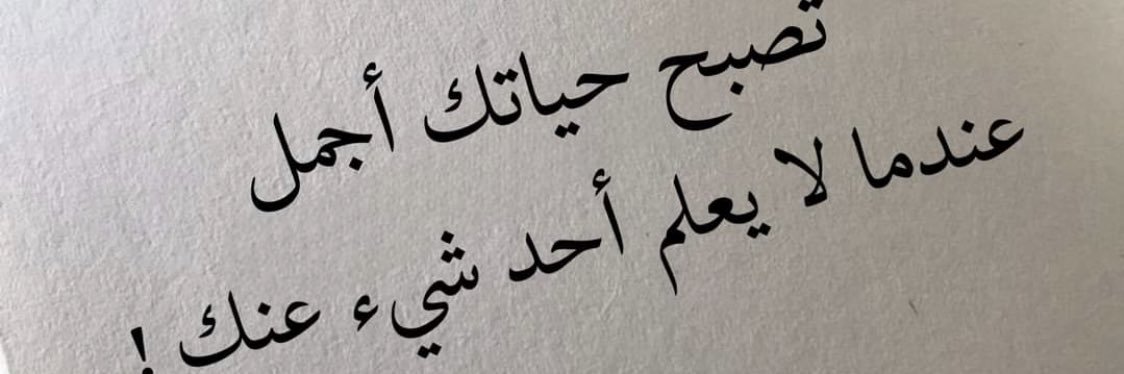 تصبح حياتك أجمل
عندما لا يعلم أحد شيء عنك !